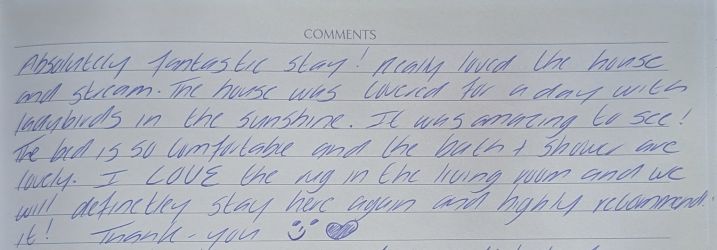 COMMENTS
Absolutely fantastic stay! Really loved the house
and stream. The house was covered for a day with
ladybirds in the sunshine. It was amazing to see!
The bed is so comfortable and the bath + shower are
lovely. I LOVE the rug in the living room and we
will definetley stay here again and highly recommend
it! Thank-you